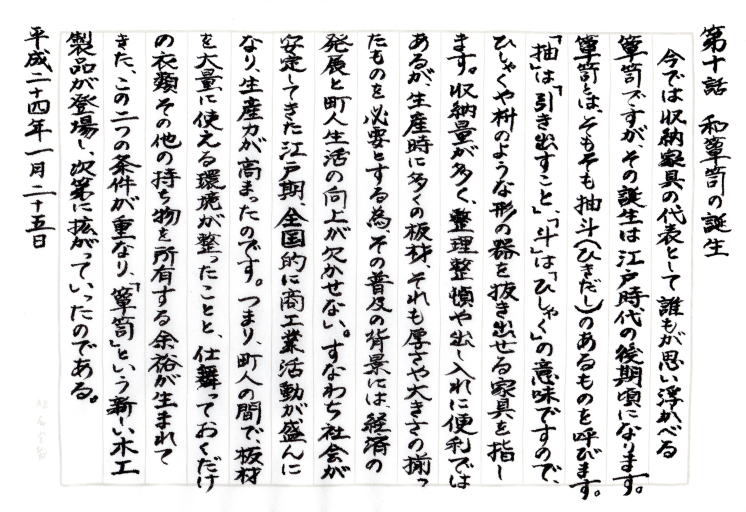 第十話　和箪笥の誕生
今では収納家具の代表として誰もが思い浮かべる
箪笥ですが、その誕生は江戸時代の後期頃になります。
箪笥とは、そもそも抽斗(ひきだし)のあるものを呼びます。
「抽」は「引き出すこと」、「斗」は「ひしゃく」の意味ですので、
ひしゃくや枡のような形の器を抜き出せる家具を指し
ます。収納量が多く、整理整頓や出し入れに便利では
あるが、生産時に多くの板材、それも厚さや大きさの揃っ
たものを必要とする為、その普及の背景には、経済の
発展と町人生活の向上が欠かせない。すなわち社会が
安定してきた江戸期、全国的に商工業活動が盛んに
なり、生産力が高まったのです。つまり、町人の間で、板材
を大量に使える環境が整ったことと、仕舞っておくだけ
の衣類その他の持ち物を所有する余裕が生まれて
きた、この二つの条件が重なり、「箪笥」という新しい木工
製品が登場し、次第に拡がっていったのである。
平成二十四年一月二十五日